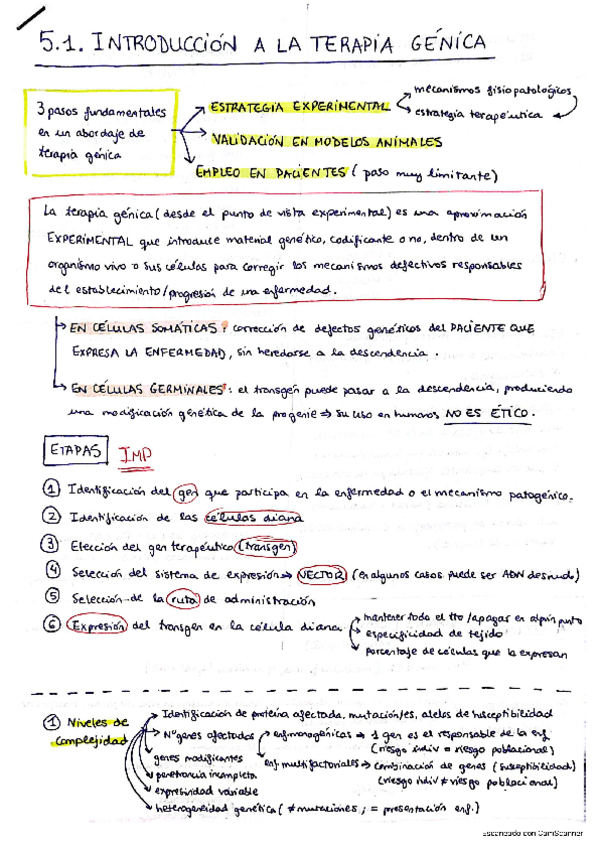 5.1. INTRODUCCIÓN A LA TERAPIA GÉNICA
3 pasos fundamentales
en un abordaje de
terapia génica
ESTRATEGIA EXPERIMENTAL
mecanismos fisiopatológicos
estrategia terapéutica
VALIDACIÓN EN MODELOS ANIMALES
EMPLEO EN PACIENTES (paso muy limitante)
La terapia génica (desde el punto de vista experimental) es una aproximación
EXPERIMENTAL que introduce material genético, codificante o no, dentro de un
organismo vivo o sus células para corregir los mecanismos defectivos responsables
del establecimiento/progresión de una enfermedad.
EN CÉLULAS SOMÁTICAS: corrección de defectos genéticos del PACIENTE QUE
EXPRESA LA ENFERMEDAD, sin heredarse a la descendencia.
EN CÉLULAS GERMINALES: el transgén puede pasar a la descendencia, produciendo
una modificación genética de la progenie ⇒ su uso en humanos NO ES ÉTICO.
ETAPAS IMP
① Identificación del gen que participa en la enfermedad o el mecanismo patogénico.
② Identificación de las células diana
③ Elección del gen terapéutico (transgen)
④ Selección del sistema de expresión → VECTOR (en algunos casos puede ser ADN desnudo)
⑤ Selección de la ruta de administración
⑥ Expresión del transgen en la célula diana
mantener todo el tto/apagar en algún punto
especificidad de tejido
porcentaje de células que lo expresan
① Niveles de
complejidad
Identificación de proteína afectada, mutación/es, alelos de susceptibilidad
Nº genes afectados
enf monogénicas → 1 gen es el responsable de la enf
(riesgo indiv = riesgo poblacional)
enf multifactoriales → combinación de genes (susceptibilidad)
(riesgo indiv ≠ riesgo poblacional)
genes modificantes
penetrancia incompleta
expresividad variable
heterogeneidad genética (≠ mutaciones; = presentación enf.)
Escaneado con CamScanner